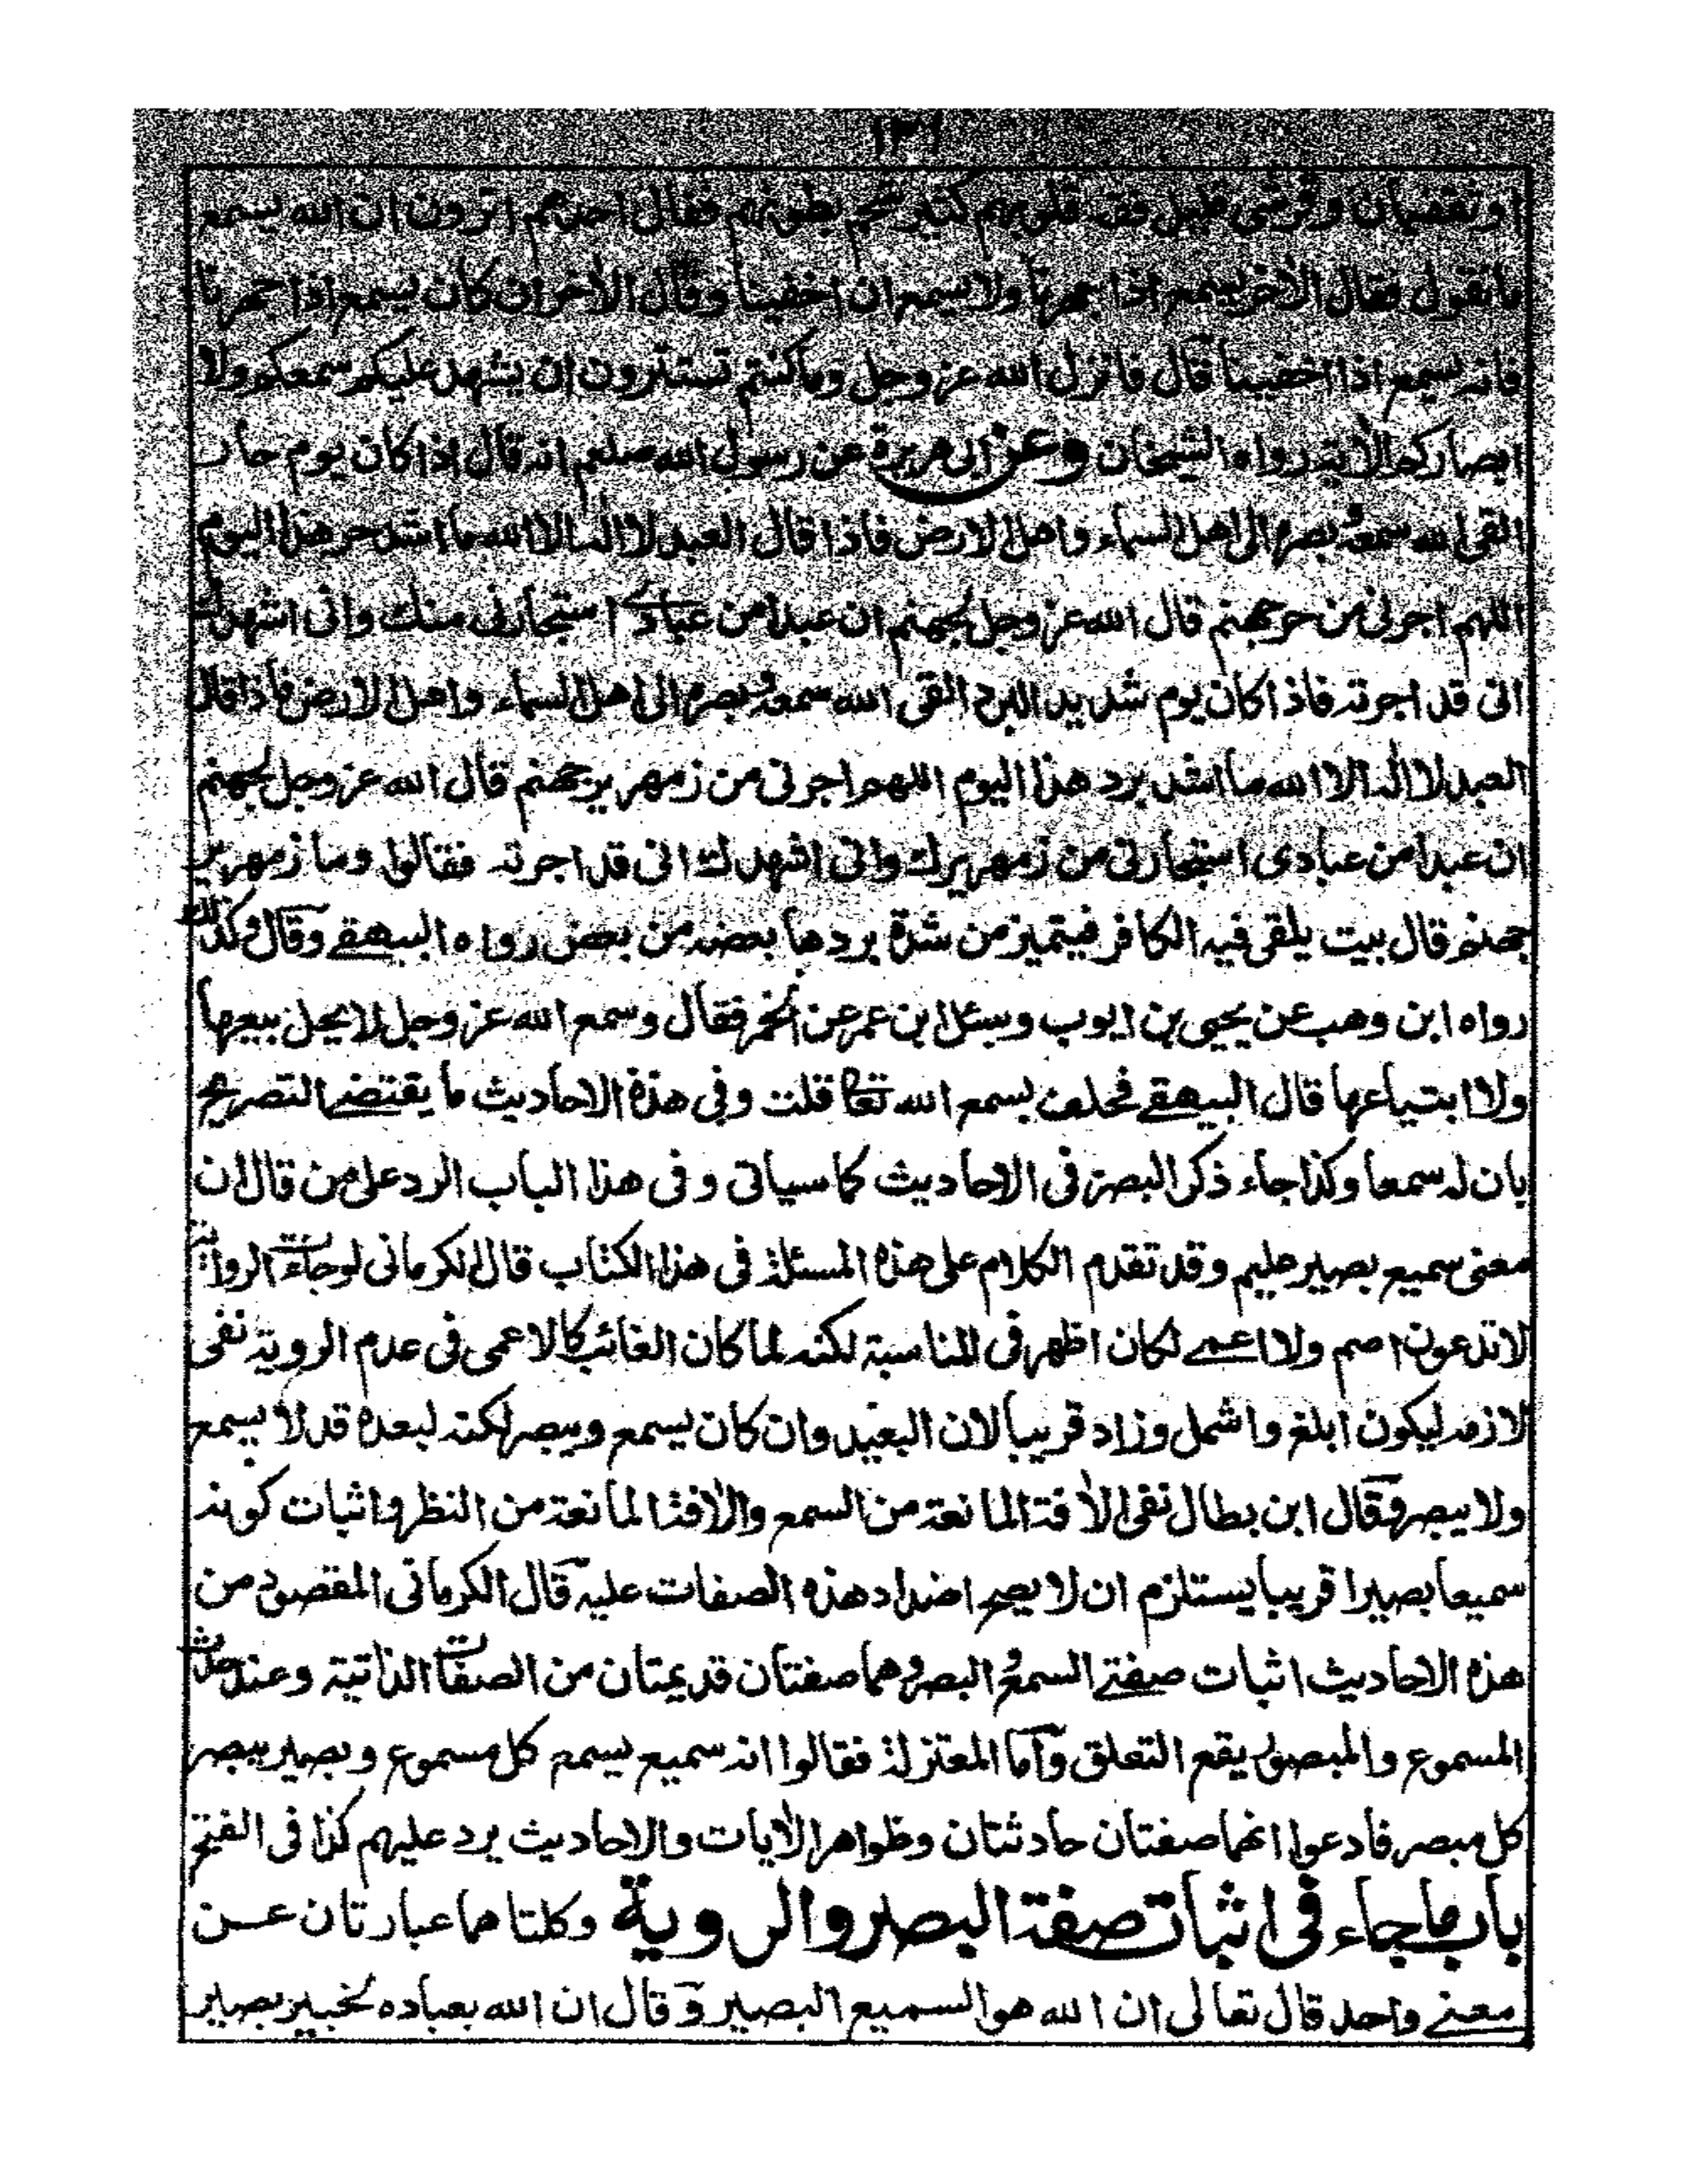 ١٣١
او ثقفيان وقرشي قليل فقه قلوبهم كثير شحم بطونهم فقال احدهم اترون ان الله يسمع
ما نقول فقال الآخر يسمع اذا جهرنا ولا يسمع ان اخفينا وقال الآخر ان كان يسمع اذا جهرنا
فانه يسمع اذا اخفينا قال فانزل الله عز وجل وما كنتم تستترون ان يشهد عليكم سمعكم ولا
ابصاركم الآية رواه الشيخان وعن ابى هريرة عن رسول الله صلعم انه قال اذا كان يوم حار
القى الله سمعه وبصره الى اهل السماء واهل الارض فاذا قال العبد لا اله الا الله ما اشد حر هذا اليوم
اللهم اجرنى من حر جهنم قال الله عز وجل لجهنم ان عبدا من عبادى استجارنى منك وانى اشهدك
انى قد اجرته فاذا كان يوم شديد البرد القى الله سمعه وبصره الى اهل السماء واهل الارض فاذا قال
العبد لا اله الا الله ما اشد برد هذا اليوم اللهم اجرنى من زمهرير جهنم قال الله عز وجل لجهنم
ان عبدا من عبادى استجارنى من زمهريرك وانى اشهدك انى قد اجرته فقالوا وما زمهرير
جهنم قال بيت يلقى فيه الكافر فيتميز من شدة بردها بعضه من بعض رواه البيهقے وقال وكذلك
رواه ابن وهب عن يحيى بن ايوب وسئل ابن عمر عن الخمر فقال وسمع الله عز وجل لا يحل بيعها
ولا ابتياعها قال البيهقے فحلف بسمع الله تعا قلت وفى هذه الاحاديث ما يقتضے التصريح
بان له سمعا وكذا جاء ذكر البصر فى الاحاديث كما سياتى وفى هذا الباب الرد على من قال ان
معنى سميع بصير عليم وقد تقدم الكلام على هذه المسئلة فى هذا الكتاب قال الكرمانى لو جاءت الرواية
لا تدعون اصم ولا اعمے لكان اظهر فى المناسبة لكنه لما كان الغائب كالاعمى فى عدم الروية نفى
لازمه ليكون ابلغ واشمل وزاد قريبا لان البعيد وان كان يسمع ويبصر لكنه لبعده قد لا يسمع
ولا يبصر وقال ابن بطال نفى الآفة المانعة من السمع والآفة المانعة من النظر واثبات كونه
سميعا بصيرا قريبا يستلزم ان لا يصح اضداد هذه الصفات عليه قال الكرمانى المقصود من
هذه الاحاديث اثبات صفتے السمع والبصر وهما صفتان قديمتان من الصفات الذاتية وعند حدوث
المسموع والمبصر يقع التعلق واما المعتزلة فقالوا انه سميع يسمع كل مسموع وبصير يبصر
كل مبصر فادعوا انهما صفتان حادثتان وظواهر الآيات والاحاديث يرد عليهم كذا فى الفتح
باب ما جاء فى اثبات صفة البصر والروية وكلتاهما عبارتان عن
معنے واحد قال تعالى ان الله هو السميع البصير وقال ان الله بعباده لخبير بصير